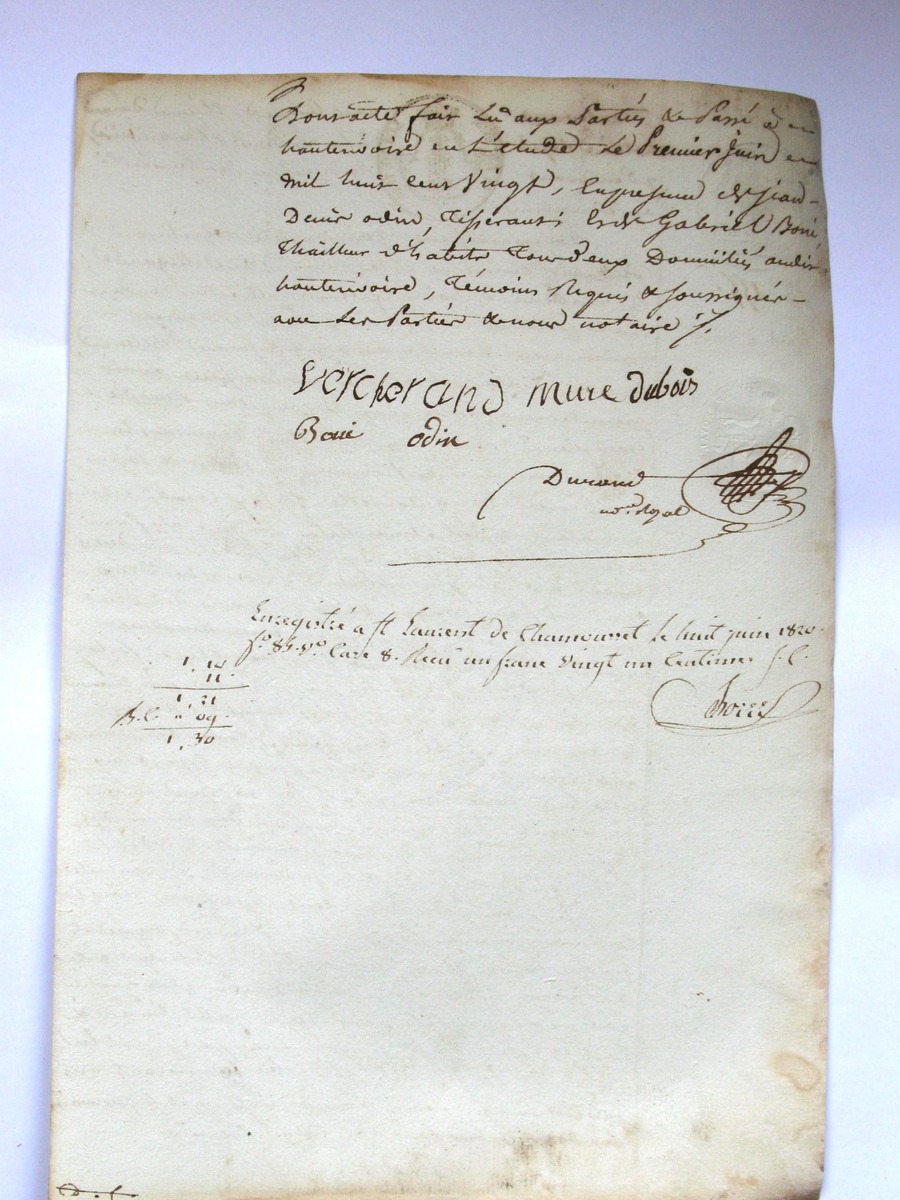 Dont acte fait Lu aux Parties & Passé à
hauterivoire en L'étude Le Premier Juin
mil huit cent Vingt, En presence de Jean-
Denis odin, Tisserant & de Gabriel Boné
Thailleur d'habits Tous d'eux Domiciliés audit
hauterivoire, Témoins Requis & soussignés -
avec Les Parties & nous notaire /.
VercherAND Mure dubois
odin
Durand
no.re Royal
Enregistré a St Laurent de Chamousset le huit juin 1820.
f.o 85. v.o Case 8. Recu un franc Vingt un Centimes
1, 10
11.
1, 21
" 09.
1, 30